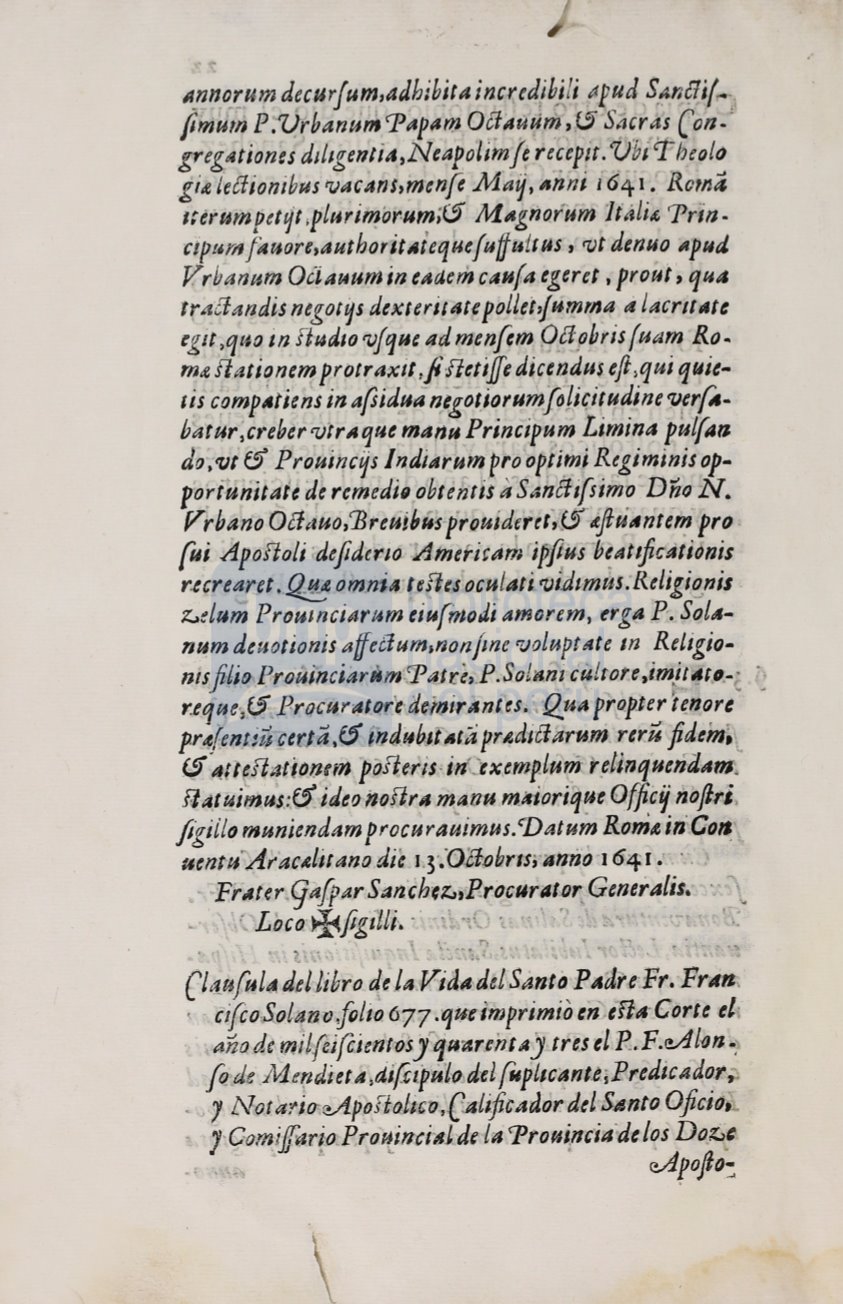 annorum decurſum, adhibita incredibili apud Sanctiſ-
ſimum P. Vrbanum Papam Octauum, & Sacras Con-
gregationes diligentia, Neapolim ſe recepit. Vbi Theolo
giæ lectionibus vacans, menſe Maij, anni 1641. Romã
iterum petijt, plurimorum, & Magnorum Italiæ Prin-
cipum fauore, authoritateque ſuffultus, vt denuo apud
Vrbanum Octauum in eadem cauſa egeret, prout, qua
tractandis negotijs dexteritate pollet, ſumma alacritate
egit, quo in ſtudio vſque ad menſem Octobris ſuam Ro-
mæ ſtationem protraxit, ſi ſtetiſſe dicendus eſt, qui quie-
tis compatiens in aſsidua negotiorum ſolicitudine verſa-
batur, creber vtraque manu Principum Limina pulſan
do, vt & Prouincijs Indiarum pro optimi Regiminis op-
portunitate de remedio obtentis à Sanctiſsimo Dño N.
Vrbano Octauo, Breuibus prouideret, & æſtuantem pro
ſui Apoſtoli deſiderio Americam ipſius beatificationis
recrearet. Quæ omnia teſtes oculati vidimus. Religionis
zelum Prouinciarum eiuſmodi amorem, erga P. Sola-
num deuotionis affectum, non ſine voluptate in Religio-
nis filio Prouinciarum Patre, P. Solani cultore, imitato-
reque, & Procuratore demirantes. Qua propter tenore
præſentiũ certã, & indubitatã prædictarum rerũ fidem,
& atteſtationem poſteris in exemplum relinquendam
ſtatuimus: & ideo noſtra manu maiorique Officij noſtri
ſigillo muniendam procurauimus. Datum Romæ in Con
uentu Aracælitano die 13. Octobris, anno 1641.
Frater Gaſpar Sanchez, Procurator Generalis.
Loco ✠ ſigilli.
Clauſula del libro de la Vida del Santo Padre Fr. Fran
ciſco Solano, folio 677. que imprimiò en eſta Corte el
año de mil ſeiſcientos y quarenta y tres el P. F. Alon-
ſo de Mendieta, diſcipulo del ſuplicante, Predicador,
y Notario Apoſtolico, Calificador del Santo Oficio,
y Comiſſario Prouincial de la Prouincia de los Doze
Apoſto-